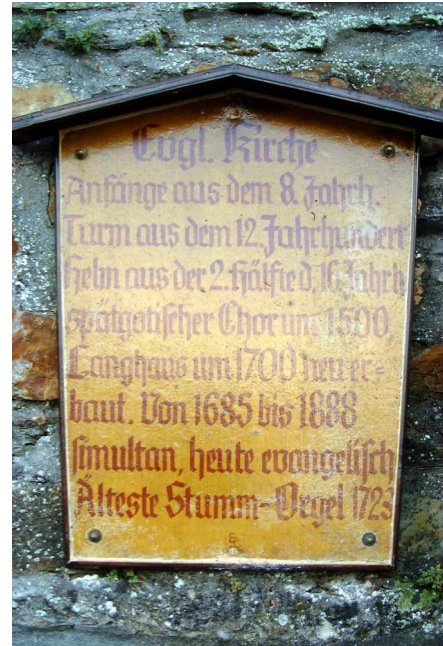 Evgl. Kirche
Anfänge aus dem 8. Jahrh.
Turm aus dem 12. Jahrhundert
Helm aus der 2. Hälfte d. 16. Jahrh
spätgotischer Chor um 1500,
Langhaus um 1700 neu er=
baut. Von 1685 bis 1888
simultan, heute evangelisch
Älteste Stumm-Orgel 1723